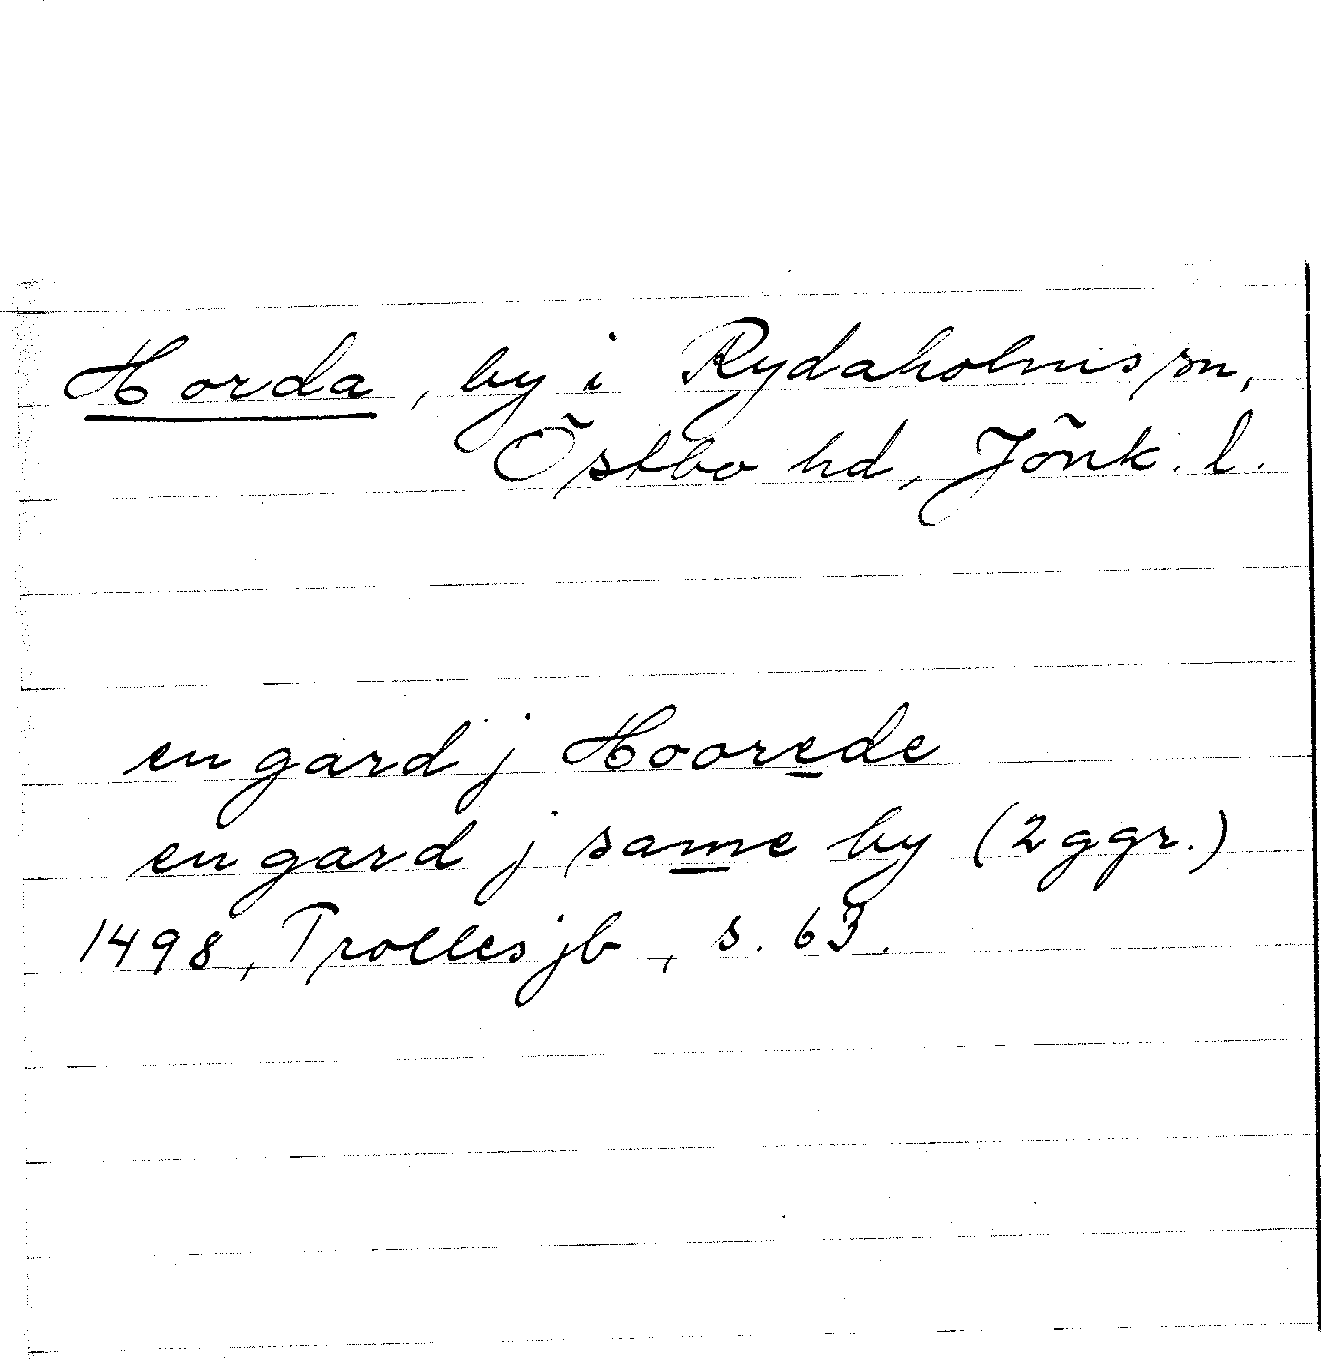 Horda, by i Rydaholms sn,
Östbo hd, Jönk. l.
en gard j Hoorede
en gard j same by (2 ggr.)
1498, Trolles jb, s. 63.